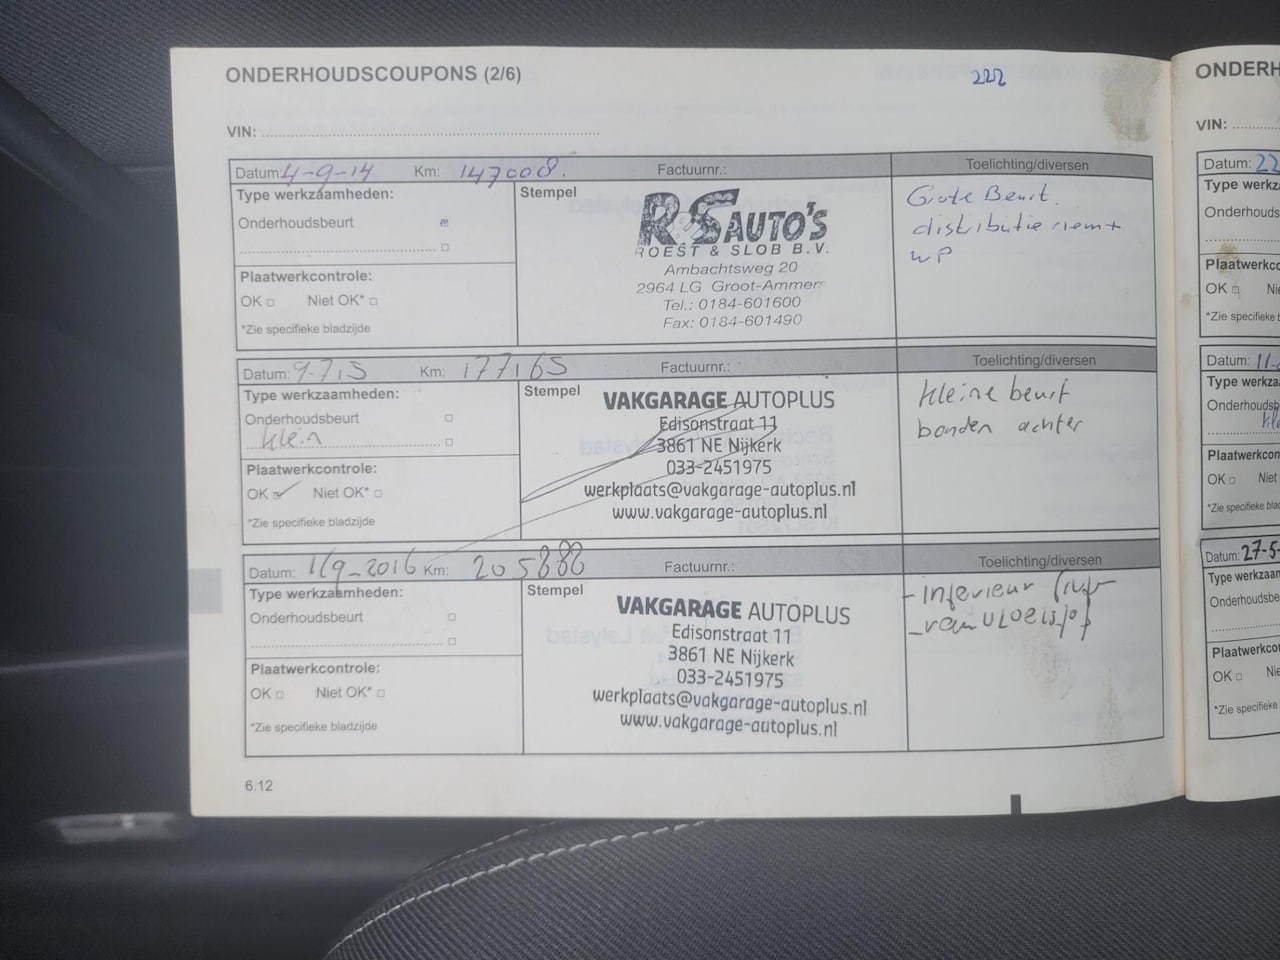 ONDERHOUDSCOUPONS (2/6)
222
VIN:
Datum: 4-9-14 Km: 147008. Factuurnr.: Toelichting/diversen
Type werkzaamheden:
Onderhoudsbeurt
Plaatwerkcontrole:
OK Niet OK*
*Zie specifieke bladzijde
Stempel
R&S AUTO'S
ROEST & SLOB B.V.
Ambachtsweg 20
2964 LG Groot-Ammers
Tel.: 0184-601600
Fax: 0184-601490
Grote Beurt.
distributie riem +
WP
Datum: 9-7-15 Km: 177165 Factuurnr.: Toelichting/diversen
Type werkzaamheden:
Onderhoudsbeurt
klein
Plaatwerkcontrole:
OK Niet OK*
*Zie specifieke bladzijde
Stempel
VAKGARAGE AUTOPLUS
Edisonstraat 11
3861 NE Nijkerk
033-2451975
werkplaats@vakgarage-autoplus.nl
www.vakgarage-autoplus.nl
kleine beurt
banden achter
Datum: 1/9-2016 Km: 205888 Factuurnr.: Toelichting/diversen
Type werkzaamheden:
Onderhoudsbeurt
Plaatwerkcontrole:
OK Niet OK*
*Zie specifieke bladzijde
Stempel
VAKGARAGE AUTOPLUS
Edisonstraat 11
3861 NE Nijkerk
033-2451975
werkplaats@vakgarage-autoplus.nl
www.vakgarage-autoplus.nl
- interieur
- remvloeistof
6.12
ONDERH
VIN:
Datum: 22
Type werkza
Onderhouds
Plaatwerkco
OK Nie
*Zie specifieke b
Datum: 11-
Type werkza
Onderhoudsb
Plaatwerkcon
OK Niet
*Zie specifieke blad
Datum: 27-5-
Type werkzaam
Onderhoudsbe
Plaatwerkco
OK Nie
*Zie specifieke